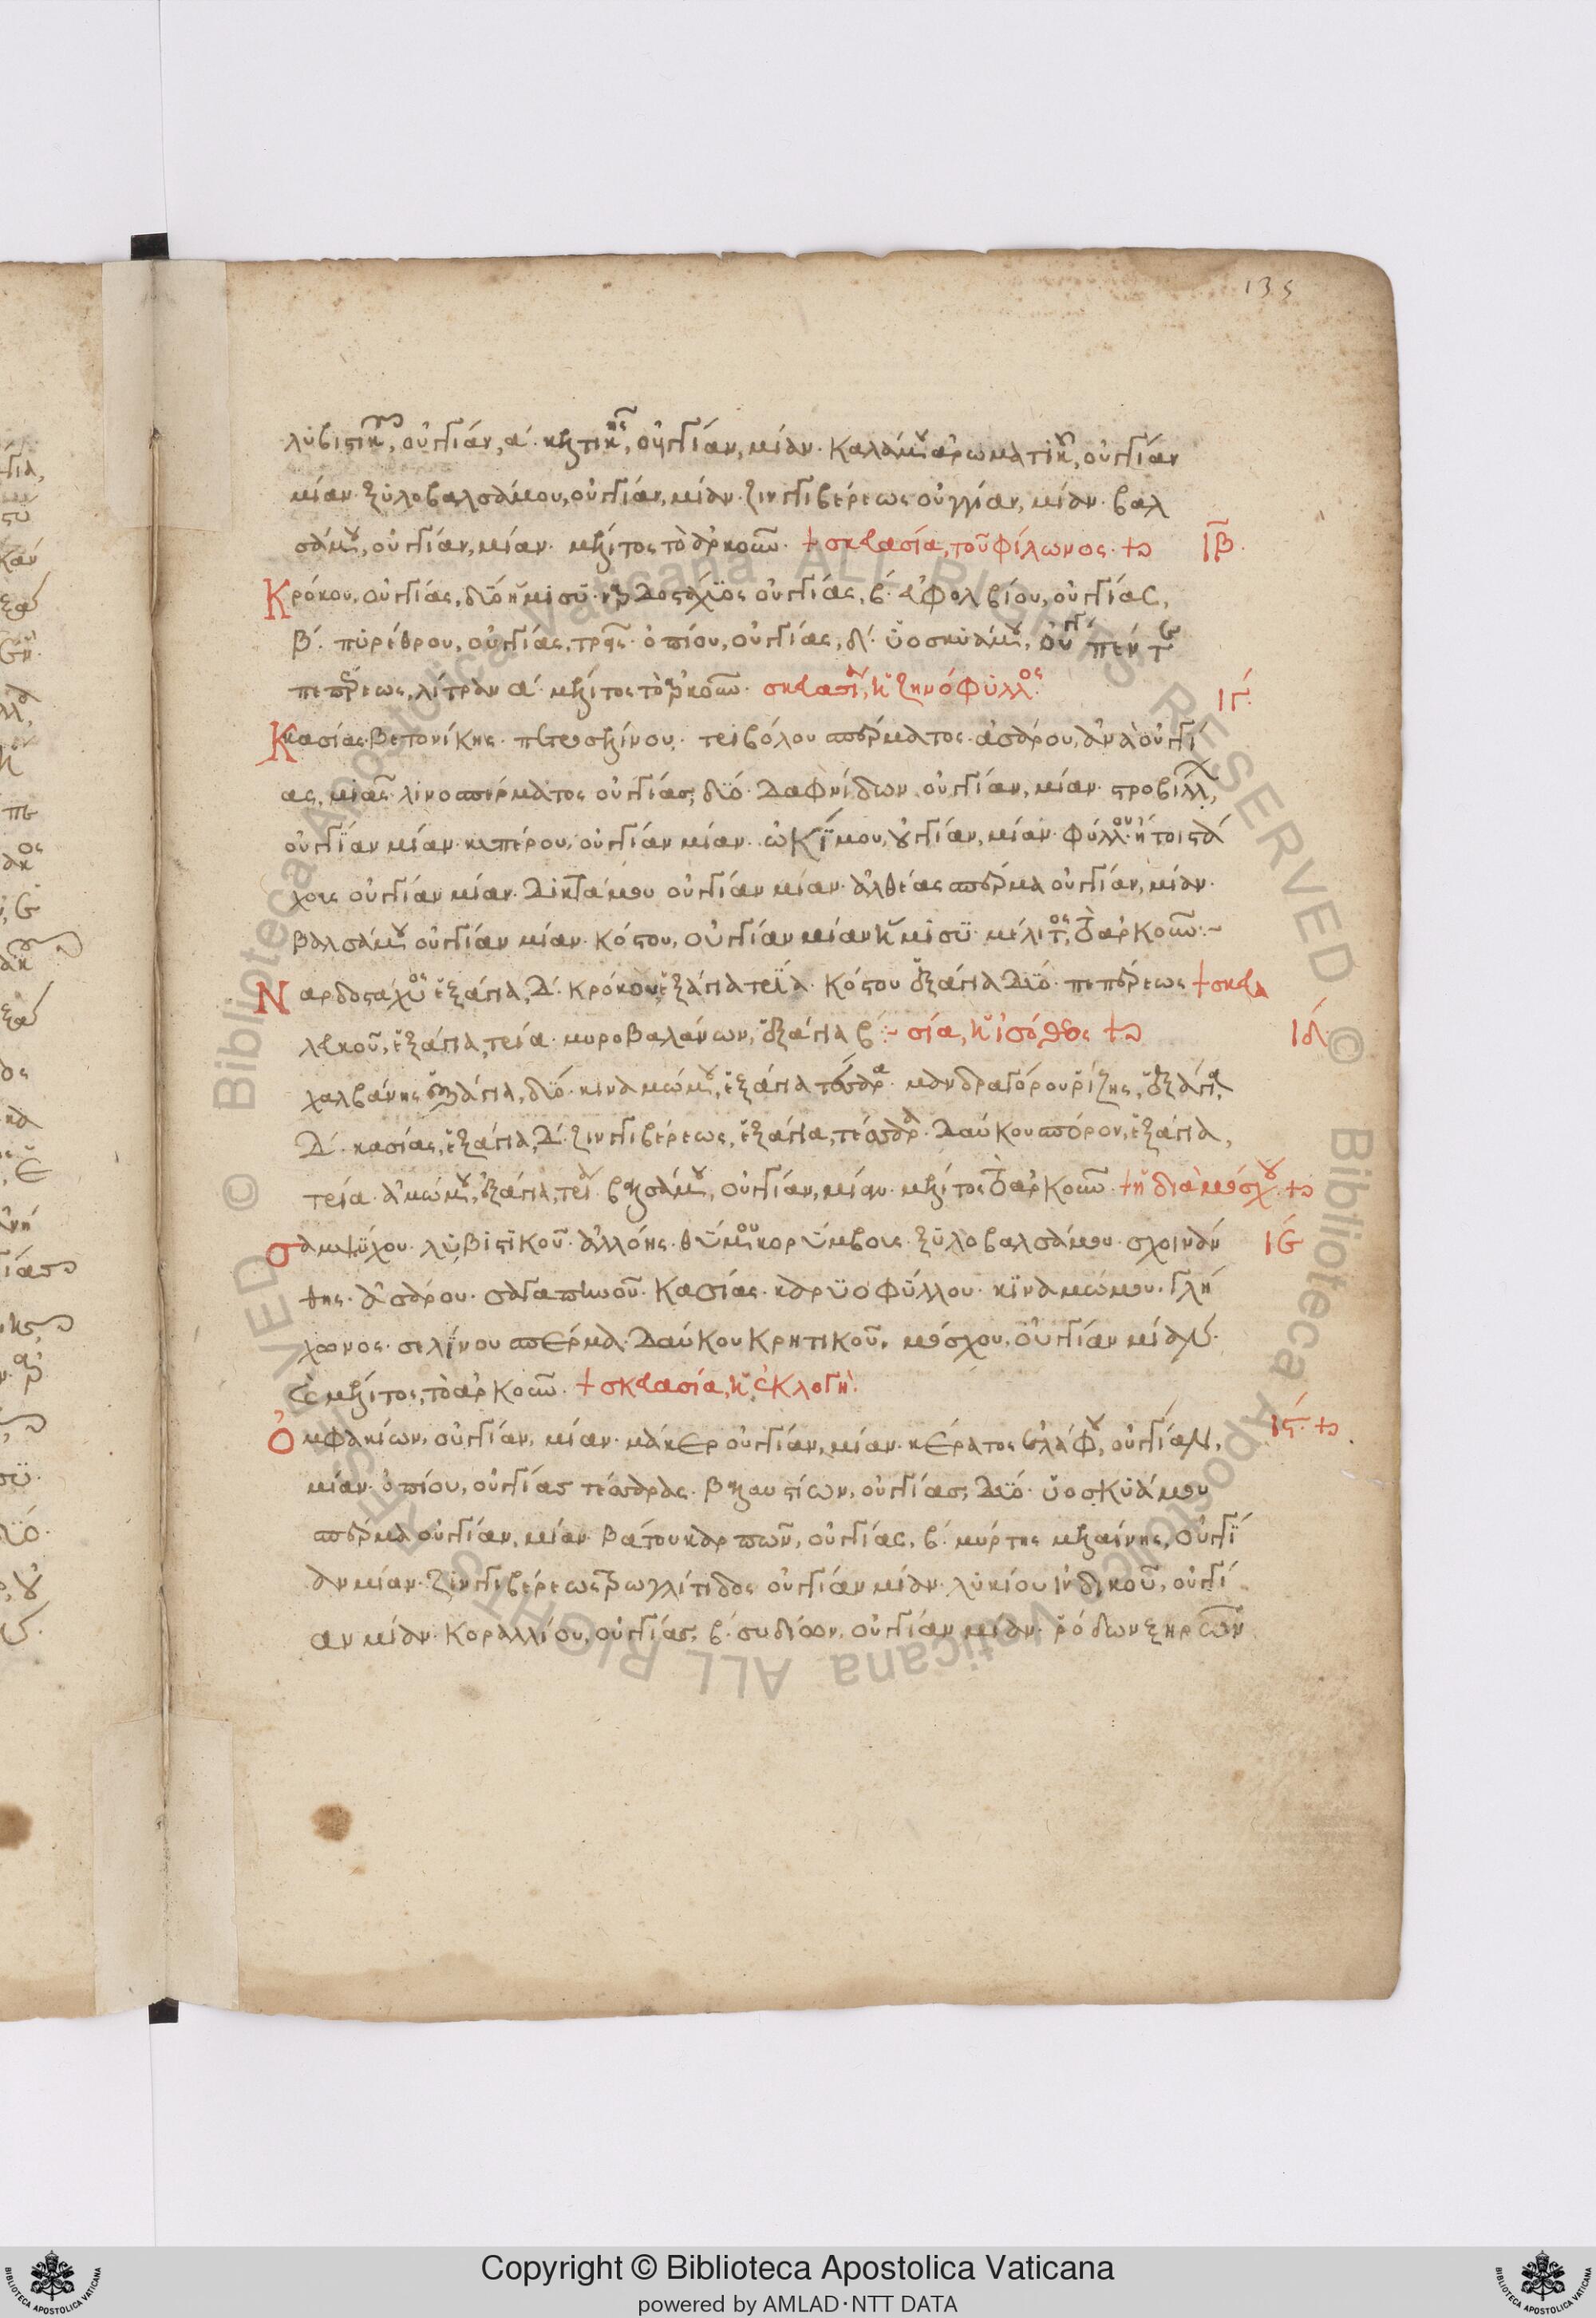 135
λϋβιστικοῦ, οὐγγίαν, α΄. κελτικῆς, οὐγγίαν, μίαν. καλάμου ἀρωματικοῦ, οὐγγίαν
μίαν. ξυλοβαλσάμου, οὐγγίαν, μίαν. ζιγγιβέρεως οὐγγίαν, μίαν. βαλ
σάμου, οὐγγίαν, μίαν. μέλιτος τὸ ἀρκοῦν. + σκευασία, τοῦ φίλωνος. ιβ.
Κρόκου, οὐγγίας, δϋό ἥμισϋ. ναρδοστάχϋος οὐγγίας, β΄. εὐφολβίου, οὐγγίας,
β΄. πϋρέθρου, οὐγγίας, τρεῖς. ὀπίου, οὐγγίας, δ΄. ὑοσκϋάμου, οὐγγ πέντε
πεπέρεως, λίτραν α΄. μέλιτος τὸ ἀρκοῦν. σκευασία, ἡ ζηνόφϋλλος. ιγ.
Κασίας. βετονίκης. πετροσελίνου. τριβόλου σπέρματος. ἀσάρου, ἀνὰ οὐγγί
ας, μίας. λινοσπέρματος οὐγγίας, δϋό. δαφνίδων οὐγγίαν, μίαν. στροβίλλ,
οὐγγίαν μίαν. κυπέρου, οὐγγίαν μίαν. ὠκΐμου, οὐγγίαν, μίαν. φύλλου. ἤτοι στά
χους οὐγγίαν μίαν. δικτάμου οὐγγίαν μίαν. ἀλθέας σπέρμα οὐγγίαν, μίαν.
βαλσάμου οὐγγίαν μίαν. κόστου, οὐγγίαν μίαν ἥμισϋ. μέλιτος, τὸ ἀρκοῦν:~
Ναρδοστάχϋος ἐξάγια, δ΄. κρόκου ἐξάγια τρία. κόστου ἐξάγια δϋό. πεπέρεως + σκευα
λευκοῦ, ἐξάγια, τρία. μυροβαλάνων, ἐξάγια β΄:~ σία, ἡ ἰσόθεος ιδ.
χαλβάνης ἐξάγια, δϋό. κιναμώμου, ἐξάγια τέσσαρα. μανδραγόρου ῥίζης, ἐξάγια,
δ΄. κασίας, ἐξάγια, δ΄. ζιγγιβέρεως, ἐξάγια, τέσσαρα. δαύκου σπόρον, ἐξάγια,
τρία. ἀμώμου, ἐξάγια, τρία. βαλσάμου, οὐγγίαν, μίαν. μέλιτος τὸ ἀρκοῦν. + ἡ διὰ μόσχου.
Σαμψύχου. λϋβιστικοῦ. ἀλλόης. θϋμου κορύμβους. ξϋλοβαλσάμου. σχοινάν ιε
θης. ἀσάρου. σαγαπηνοῦ. κασίας. καρϋοφύλλου. κιναμώμου. γλή
χωνος. σελΐνου σπέρμα. δαύκου κρητικοῦ. μόσχου. οὐγγίαν μίαν.
μέλιτος, τὸ ἀρκοῦν. + σκευασία, ἡ ἐκλογή.
Ὀμφακίων, οὐγγίαν, μίαν. μάκερ οὐγγίαν, μίαν. κέρατος ἐλάφου, οὐγγίαν, ιϛ.
μίαν. ὀπίου, οὐγγίας τέσσαρας. βαλαυστίων, οὐγγίας, δϋό. ὑοσκϋάμου
σπέρμα οὐγγίαν, μίαν. βάτου καρπῶν, οὐγγίας, β΄. μύρτης μελαίνης, οὐγγΐ
αν μίαν. ζιγγιβέρεως τρωγλίτιδος οὐγγίαν μίαν. λϋκίου ἰνδικοῦ, οὐγγί
αν μίαν. κοραλλίου, οὐγγίας, β΄. σιδίων, οὐγγίαν μίαν. ῥόδων ξηρῶν
© Biblioteca Apostolica Vaticana ALL RIGHTS RESERVED © Biblioteca Apostolica Vaticana ALL RIGHTS RESERVED
BIBLIOTECA APOSTOLICA VATICANA
Copyright © Biblioteca Apostolica Vaticana
powered by AMLAD·NTT DATA
BIBLIOTECA APOSTOLICA VATICANA